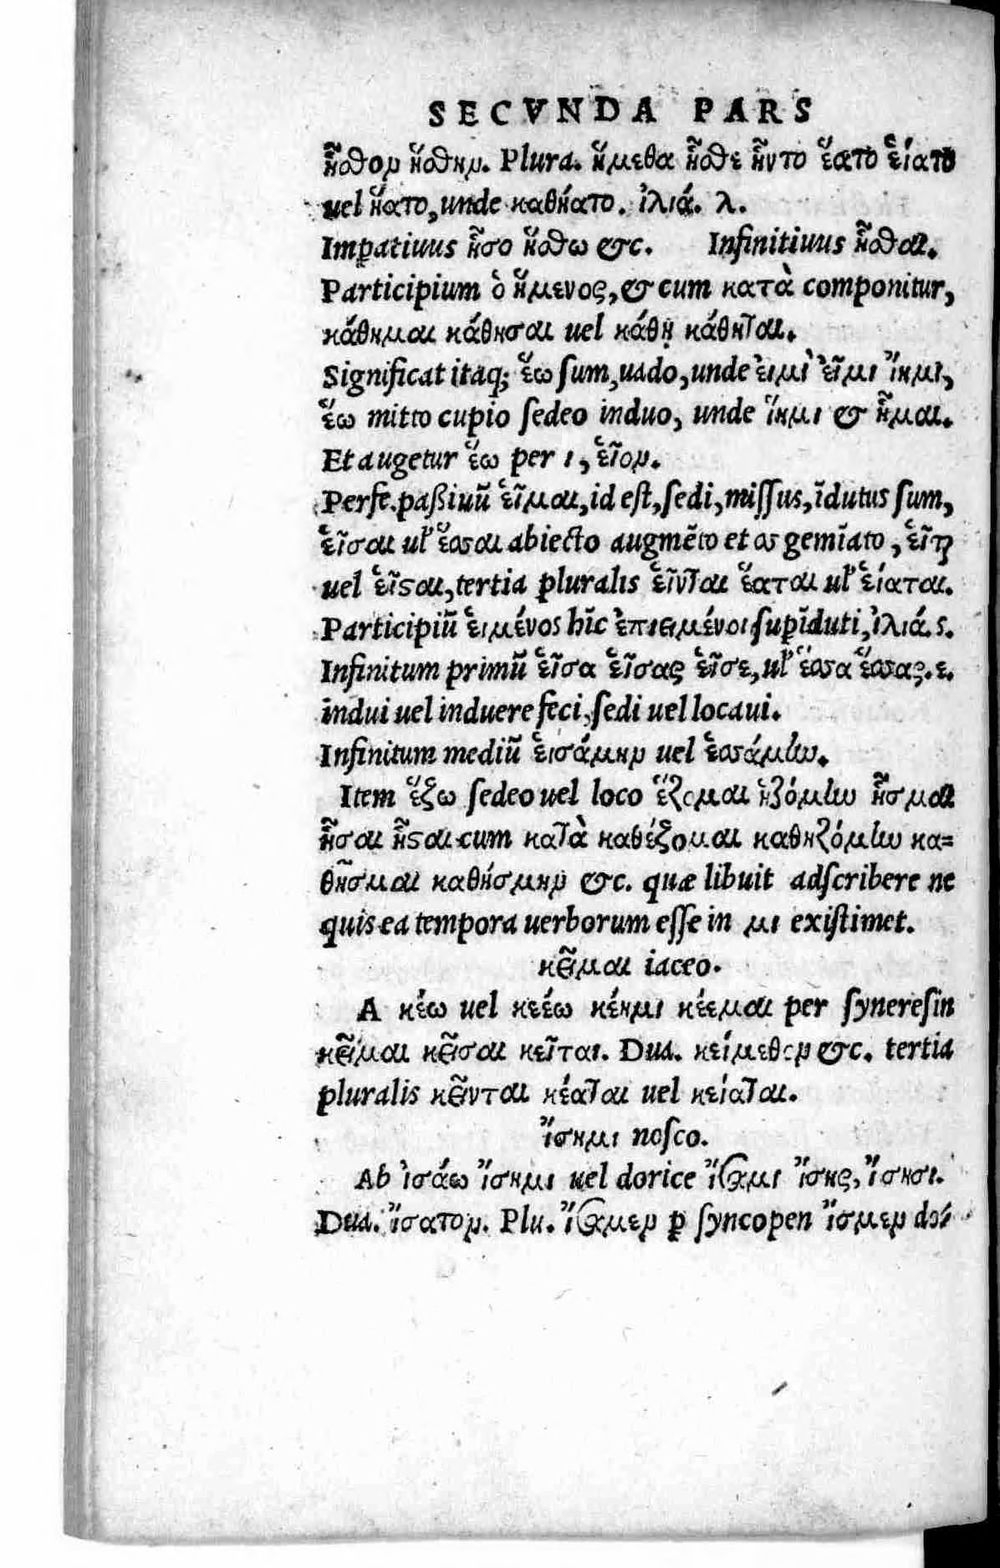 SECVNDA PARS
ἧσθον ἥσθην. Plura. ἥμεθα ἧσθε ἧντο ἕατο εἵατο
uel ἥατο, unde καθήατο. ἰλιά. λ.
Impatiuus ἧσο ἥσθω &c. Infinitiuus ἧσθαι.
Participium ὁ ἥμενος, & cum κατὰ componitur,
κάθημαι κάθησαι uel κάθῃ κάθηται.
Significat itaq; ἕω sum, uado, unde εἰμὶ εἶμι ἵημι,
ἕω mitto cupio sedeo induo, unde ἵημι & ἧμαι.
Et augetur ἕω per ι, εἷον.
Perfe. paßiuũ εἷμαι, id est, sedi, missus, ĩdutus sum,
εἷσαι ul' ἕσσαι abiecto augmẽto et σσ gemĩato, εἷτ
uel εἷσαι, tertia pluralis εἷνται ἕαται ul' εἵαται.
Participiũ εἱμένος hĩc ἐπιειμένοι supĩduti, ἰλιά. ς.
Infinitum primũ εἷσα εἷσας εἷσε, ul' ἕσσα ἕσσας. ε.
indui uel induere feci, sedi uel locaui.
Infinitum mediũ εἱσάμην uel ἑσσάμην.
Item ἕζω sedeo uel loco ἕζομαι ἡζόμην ἧσμαι
ἧσαι ἧσται cum κατὰ καθέζομαι καθηζόμην κα=
θῆσμαι καθήσμην &c. quæ libuit adscribere ne
quis ea tempora uerborum esse in μι existimet.
κεῖμαι iaceo.
A κέω uel κείω κέημι κέεμαι per syneresin
κεῖμαι κεῖσαι κεῖται. Dua. κείμεθον &c. tertia
pluralis κεῖνται κέαται uel κείαται.
ἴσημι nosco.
Ab ἰσάω ἴσημι uel dorice ἴσαμι ἴσης, ἴσησι.
Dua. ἴσατον. Plu. ἴσαμεν ꝑ syncopen ἴσμεν do=